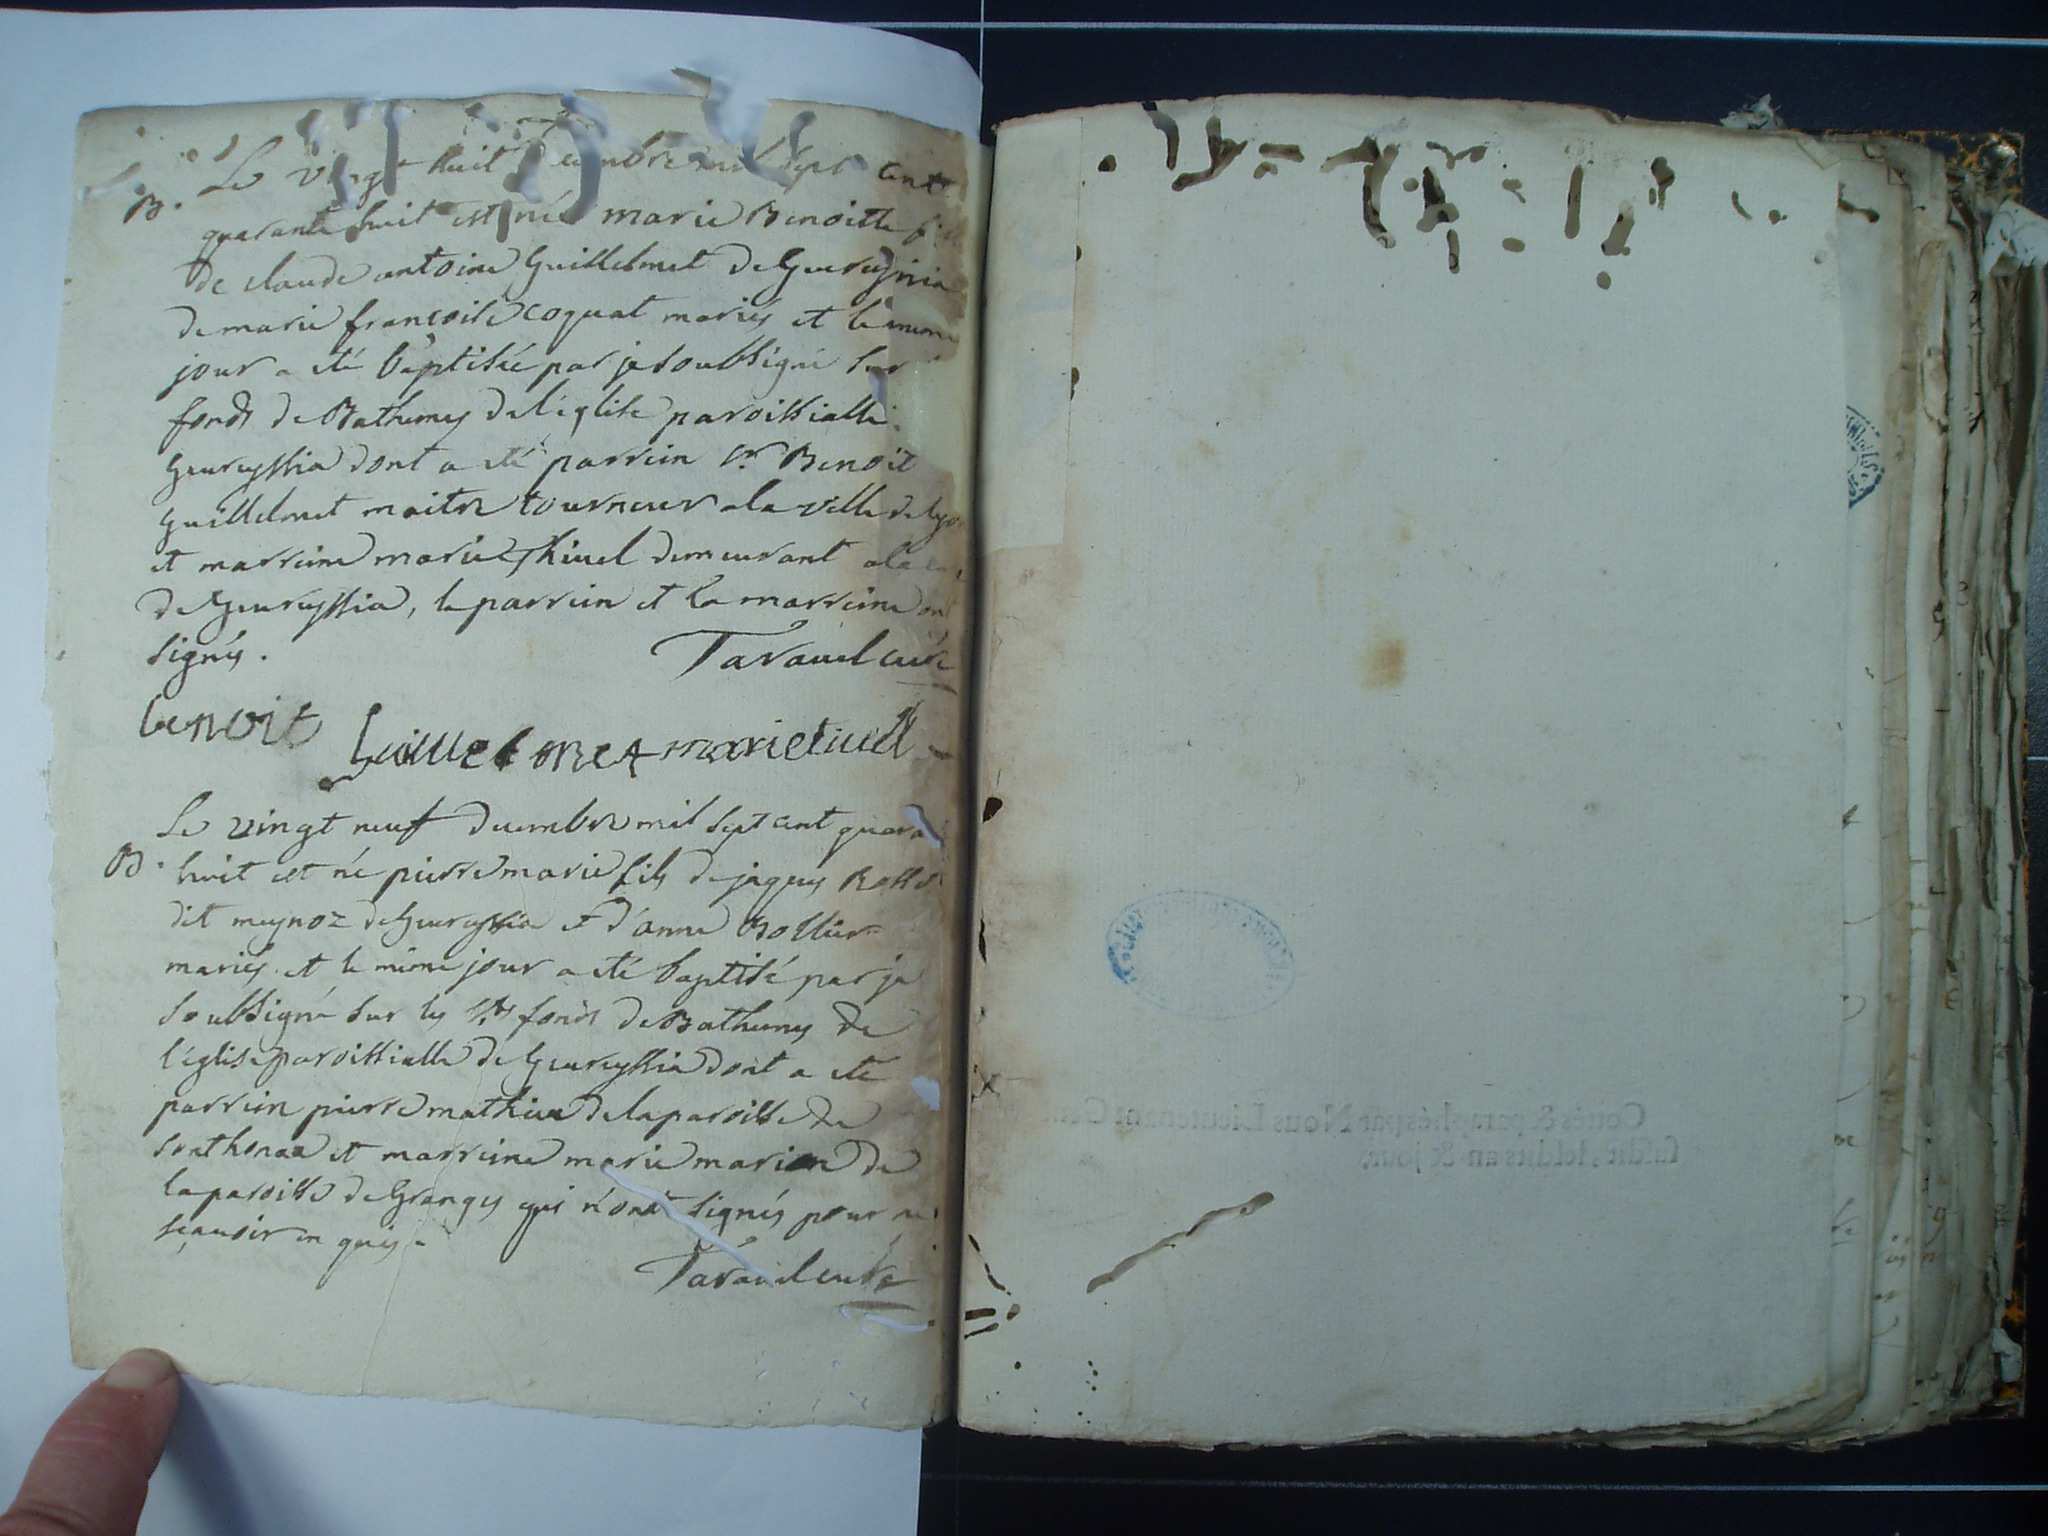 Le vingt huit decembre mil sept cent
B. quarante huit est née marie Benoitte
de claude antoine Guillelmet de Geureyssia
de marie francoise coquat mariés et le meme
jour a eté baptisée par je soubsigné sur
fonds de Bathemes de l'eglise paroissialle
Geureyssia dont a eté parrein sr. Benoit
Guillelmet maitre tourneur a la ville de Lyon
et marreine marie thiuel demeurant a la
de Geureyssia, le parrein et la marreine ont
signés. Tarauel curé
benoit guillelmet marie tiuel
Le vingt neuf decembre mil sept cent quara
B. huit est né pierre marie fils de jaques
dit meynoz de Geureyssia et d'anne Bollier
mariés et le méme jour a eté baptisé par je
soubsigné sur les sts fonds de Bathemes de
l'eglise paroissialle de Geureyssia dont a eté
parrein pierre mathieu de la paroisse de
et marreine marie marion de
la paroisse de Granges qui n'ont signés pour ne
sçauoir en quis.
Tarauel curé
Cottés & paraphés par Nous Lieutenant
susdit, lesdits an & jour.